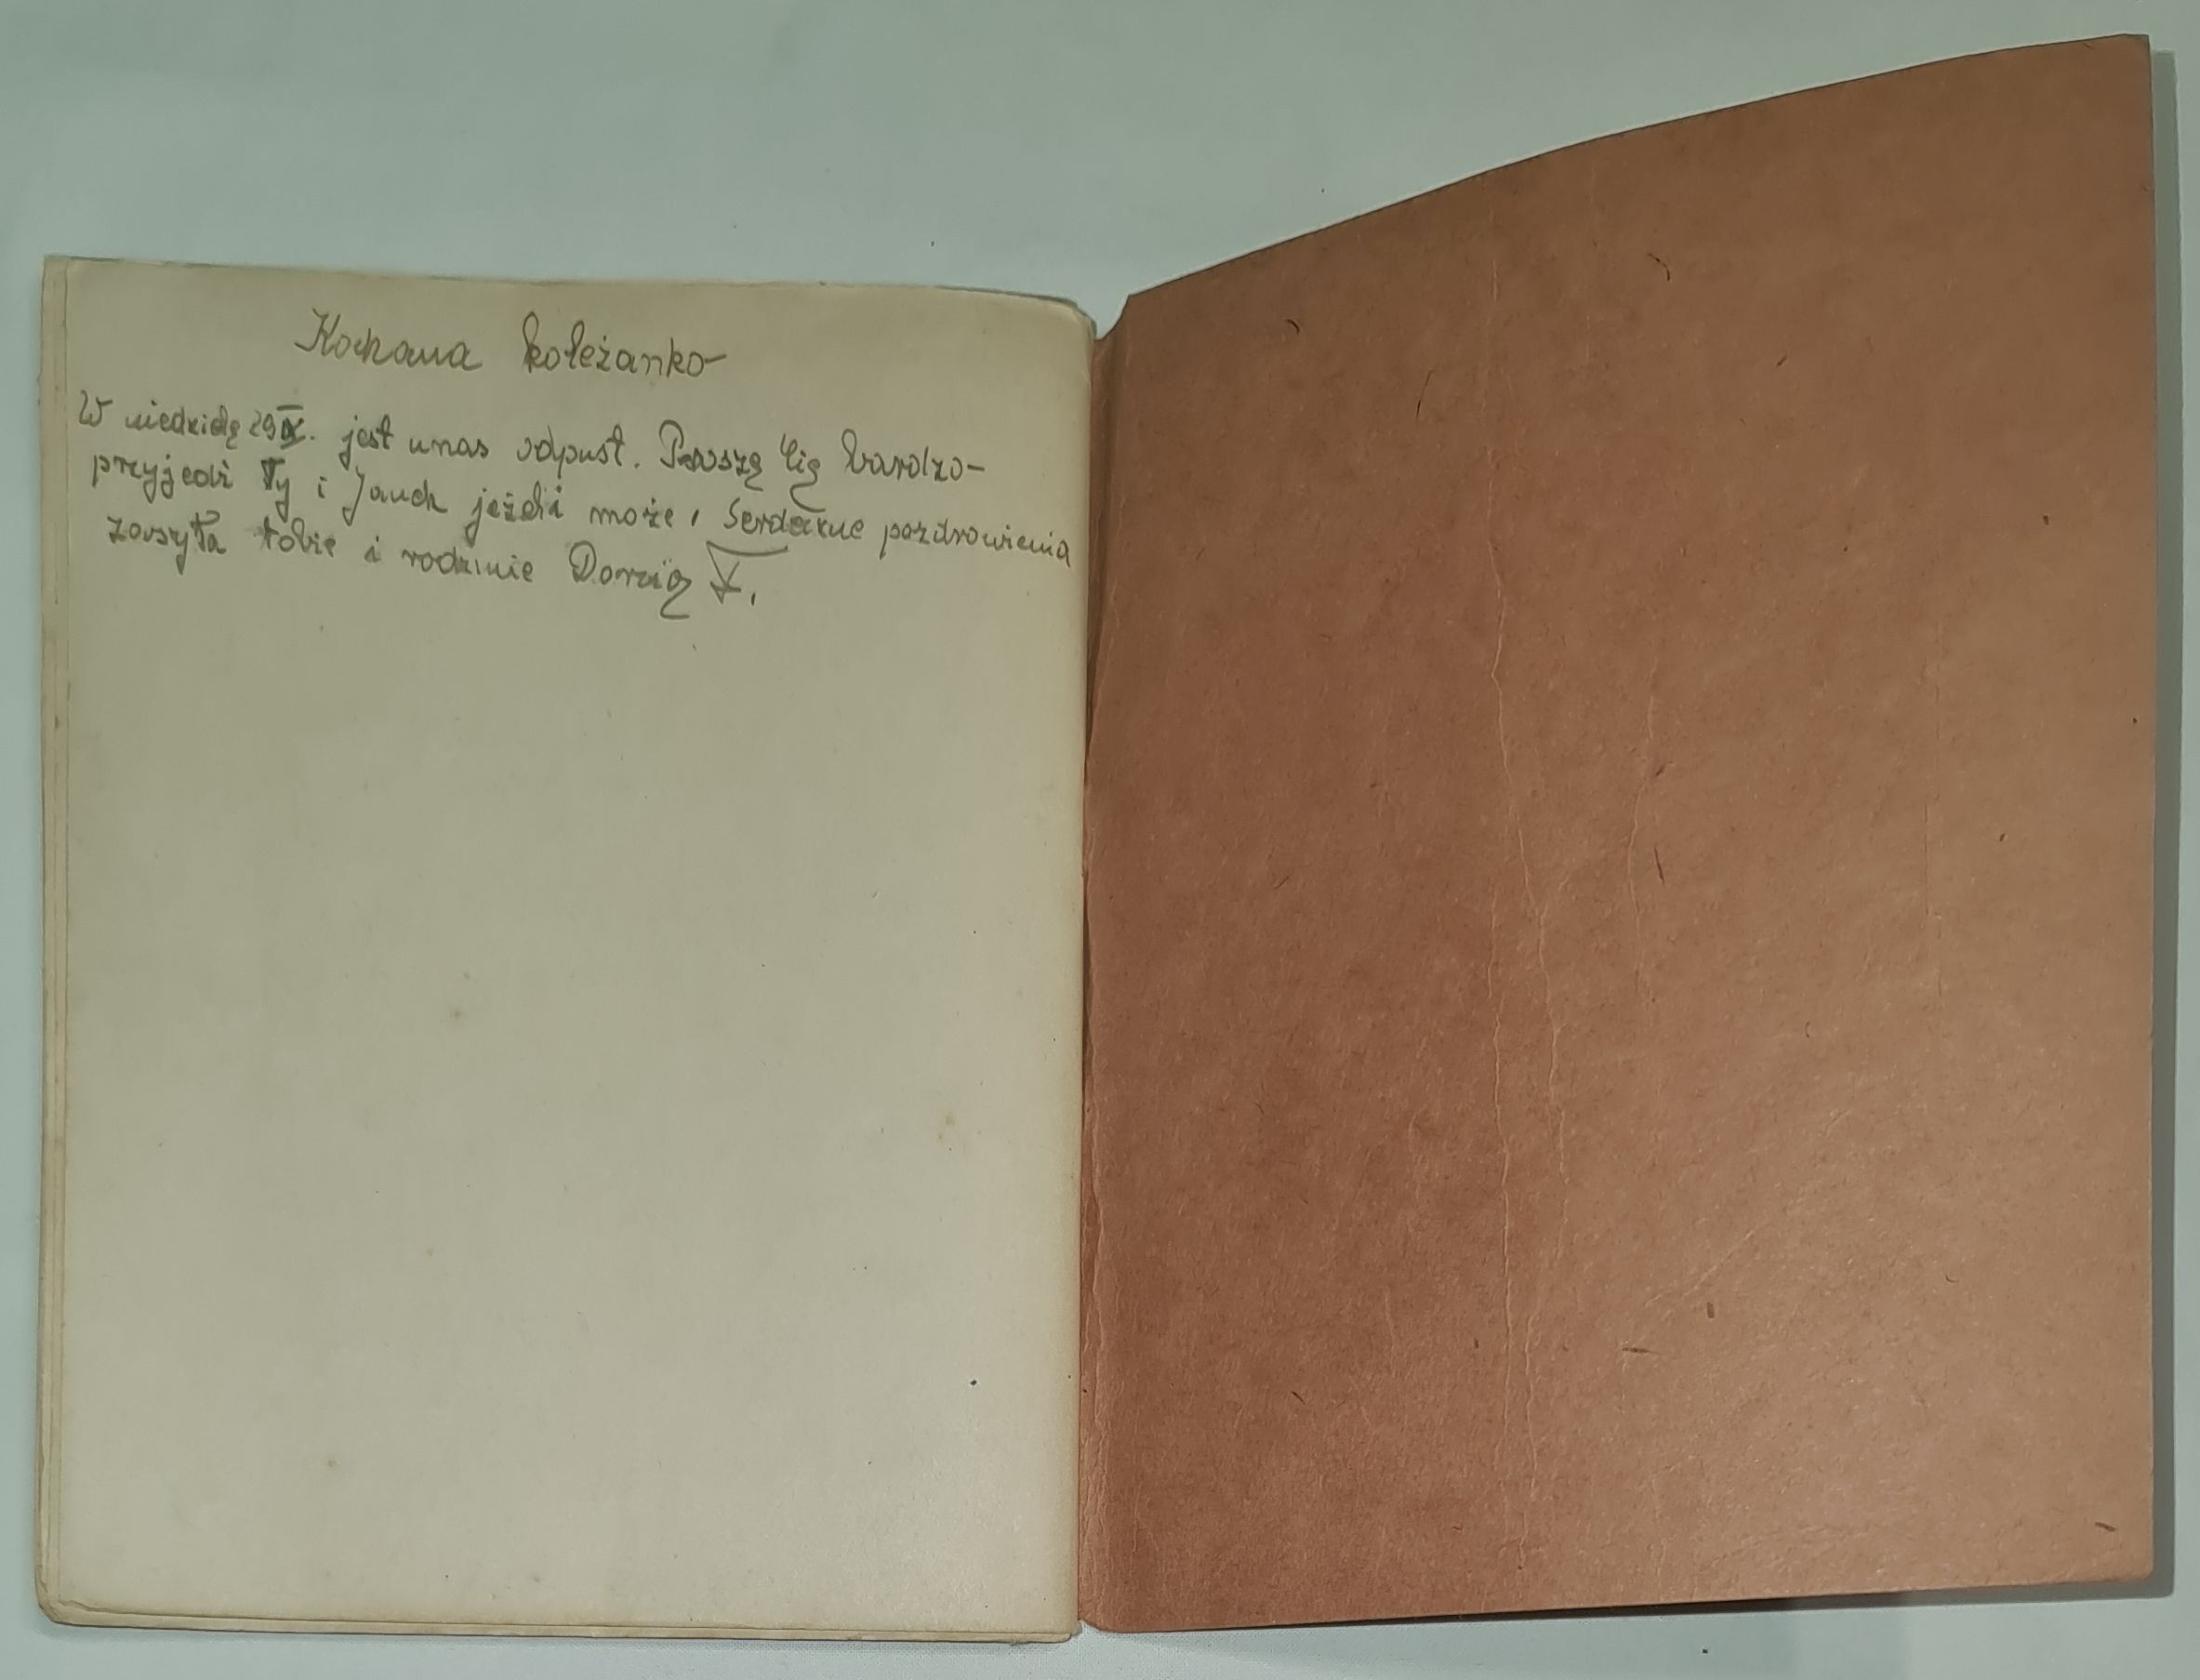 Kochana koleżanko
W niedzielę 29 IX. jest unas odpust. Proszę Cię bardzo
przyjedź Ty i Janek jeżeli może, Serdeczne pozdrowienia
zasyła tobie i rodzinie